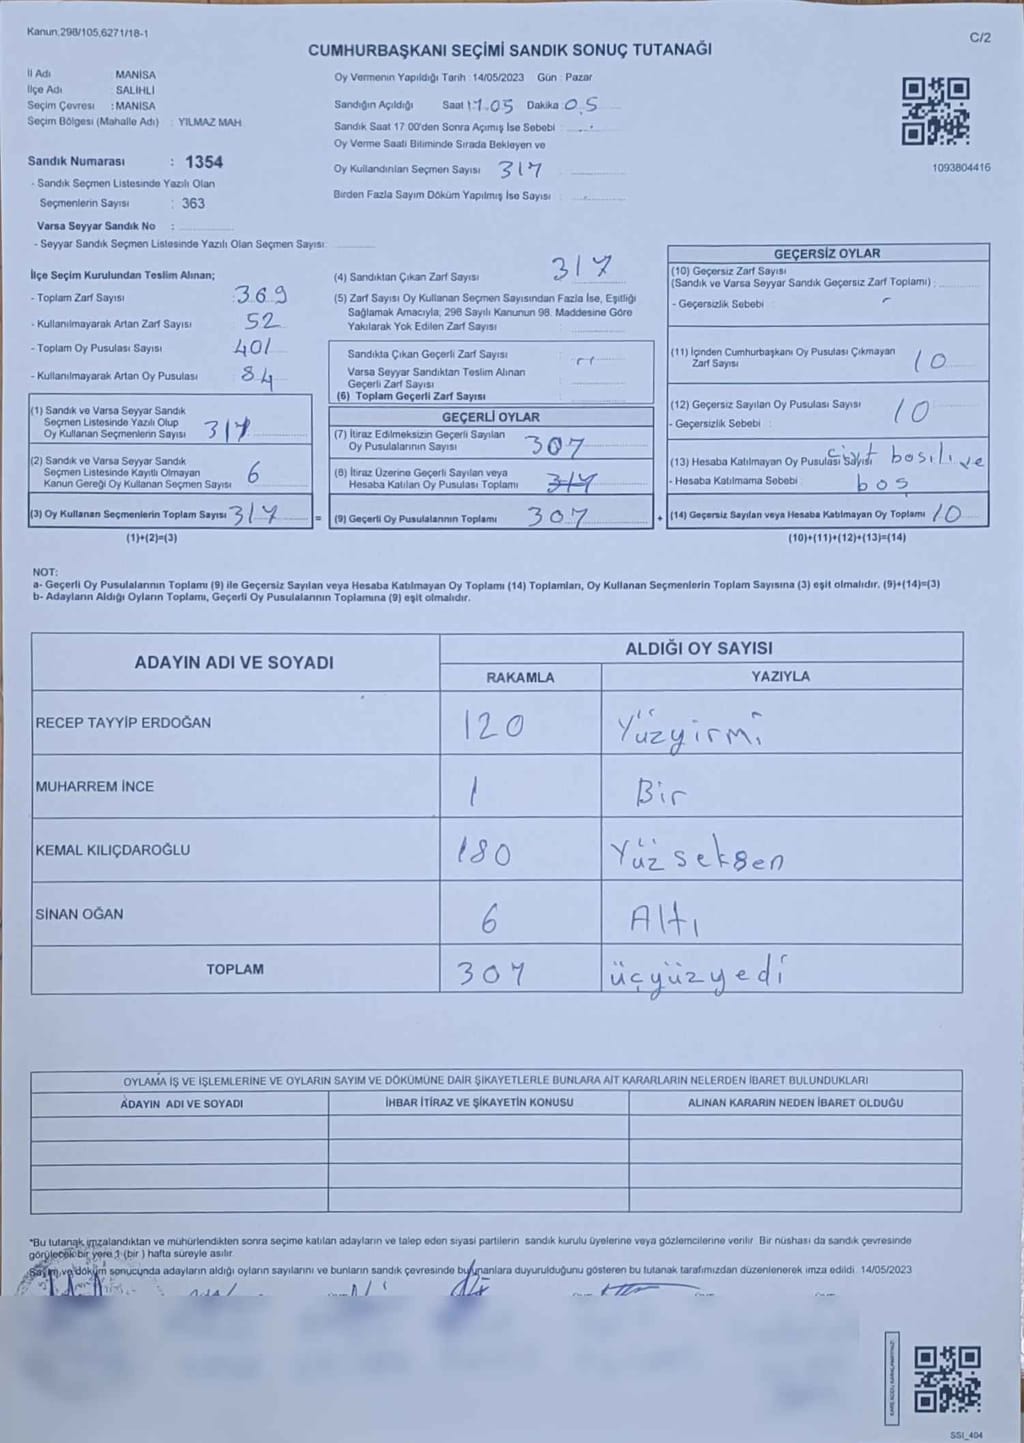 Kanun,298/105,6271/18-1
C/2
CUMHURBAŞKANI SEÇİMİ SANDIK SONUÇ TUTANAĞI
İl Adı MANİSA
İlçe Adı : SALİHLİ
Seçim Çevresi : MANİSA
Seçim Bölgesi (Mahalle Adı) : YILMAZ MAH.
Oy Vermenin Yapıldığı Tarih : 14/05/2023 Gün : Pazar
Sandığın Açıldığı Saat 17.05 Dakika 05
Sandık Saat 17 00'den Sonra Açımış İse Sebebi :
Oy Verme Saati Bitiminde Sırada Bekleyen ve
Oy Kullandırılan Seçmen Sayısı 317
Birden Fazla Sayım Döküm Yapılmış İse Sayısı :
1093804416
Sandık Numarası : 1354
- Sandık Seçmen Listesinde Yazılı Olan
Seçmenlerin Sayısı : 363
Varsa Seyyar Sandık No :
- Seyyar Sandık Seçmen Listesinde Yazılı Olan Seçmen Sayısı:
İlçe Seçim Kurulundan Teslim Alınan;
- Toplam Zarf Sayısı : 369
- Kullanılmayarak Artan Zarf Sayısı 52
- Toplam Oy Pusulası Sayısı 401
- Kullanılmayarak Artan Oy Pusulası 84
(1) Sandık ve Varsa Seyyar Sandık
Seçmen Listesinde Yazılı Olup
Oy Kullanan Seçmenlerin Sayısı 317
(2) Sandık ve Varsa Seyyar Sandık
Seçmen Listesinde Kayıtlı Olmayan
Kanun Gereği Oy Kullanan Seçmen Sayısı 6
(3) Oy Kullanan Seçmenlerin Toplam Sayısı 317
(1)+(2)=(3)
(4) Sandıktan Çıkan Zarf Sayısı 317
(5) Zarf Sayısı Oy Kullanan Seçmen Sayısından Fazla İse, Eşitliği
Sağlamak Amacıyla, 298 Sayılı Kanunun 98. Maddesine Göre
Yakılarak Yok Edilen Zarf Sayısı :
Sandıkta Çıkan Geçerli Zarf Sayısı
Varsa Seyyar Sandıktan Teslim Alınan
Geçerli Zarf Sayısı
(6) Toplam Geçerli Zarf Sayısı
GEÇERLİ OYLAR
(7) İtiraz Edilmeksizin Geçerli Sayılan
Oy Pusulalarının Sayısı 307
(8) İtiraz Üzerine Geçerli Sayılan veya
Hesaba Katılan Oy Pusulası Toplamı 317
= (9) Geçerli Oy Pusulalarının Toplamı 307
GEÇERSİZ OYLAR
(10) Geçersiz Zarf Sayısı
(Sandık ve Varsa Seyyar Sandık Geçersiz Zarf Toplamı) :
- Geçersizlik Sebebi
(11) İçinden Cumhurbaşkanı Oy Pusulası Çıkmayan
Zarf Sayısı 10
(12) Geçersiz Sayılan Oy Pusulası Sayısı 10
- Geçersizlik Sebebi :
(13) Hesaba Katılmayan Oy Pusulası Sayısı Çift basılı ve
- Hesaba Katılmama Sebebi boş
+ (14) Geçersiz Sayılan veya Hesaba Katılmayan Oy Toplamı 10
(10)+(11)+(12)+(13)=(14)
NOT:
a- Geçerli Oy Pusulalarının Toplamı (9) ile Geçersiz Sayılan veya Hesaba Katılmayan Oy Toplamı (14) Toplamları, Oy Kullanan Seçmenlerin Toplam Sayısına (3) eşit olmalıdır. (9)+(14)=(3)
b- Adayların Aldığı Oyların Toplamı, Geçerli Oy Pusulalarının Toplamına (9) eşit olmalıdır.
ADAYIN ADI VE SOYADI ALDIĞI OY SAYISI
RAKAMLA YAZIYLA
RECEP TAYYİP ERDOĞAN 120 Yüzyirmi
MUHARREM İNCE 1 Bir
KEMAL KILIÇDAROĞLU 180 Yüz seksen
SİNAN OĞAN 6 Altı
TOPLAM 307 üçyüzyedi
OYLAMA İŞ VE İŞLEMLERİNE VE OYLARIN SAYIM VE DÖKÜMÜNE DAİR ŞİKAYETLERLE BUNLARA AİT KARARLARIN NELERDEN İBARET BULUNDUKLARI
ADAYIN ADI VE SOYADI İHBAR İTİRAZ VE ŞİKAYETİN KONUSU ALINAN KARARIN NEDEN İBARET OLDUĞU
*Bu tutanak imzalandıktan ve mühürlendikten sonra seçime katılan adayların ve talep eden siyasi partilerin sandık kurulu üyelerine veya gözlemcilerine verilir. Bir nüshası da sandık çevresinde
görülecek bir yere 1 (bir ) hafta süreyle asılır.
Sayım ve döküm sonucunda adayların aldığı oyların sayılarını ve bunların sandık çevresinde bulunanlara duyurulduğunu gösteren bu tutanak tarafımızdan düzenlenerek imza edildi. 14/05/2023
SSI_404